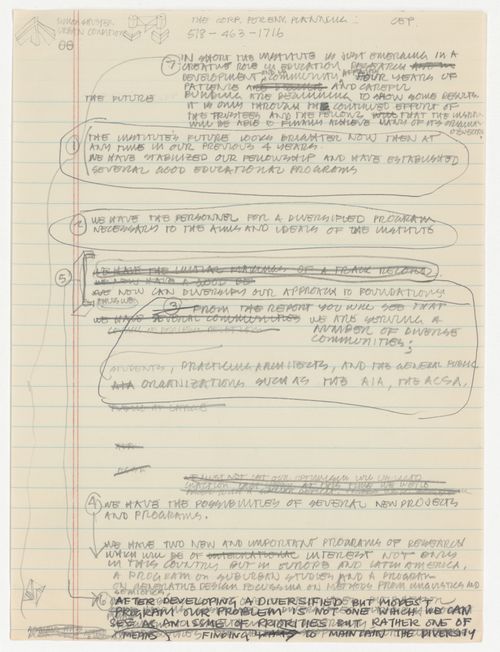 THE CORP. FOR ENV. PLANNING: CEP.
URBAN CONDITIONS
518-463-1716
7 IN SHORT THE INSTITUTE IS JUST EMERGING IN A
CREATIVE ROLE IN EDUCATION, RESEARCH
DEVELOPMENT COMMUNITY FOUR YEARS OF
PATIENCE AND CAREFUL
FUNDING ARE BEGINNING TO SHOW SOME RESULTS
THE FUTURE
IT IS ONLY THROUGH THE CONTINUED EFFORT OF
THE TRUSTEES AND THE FELLOWS THAT THE INSTITUTE
WILL BE ABLE TO ACHIEVE MANY OF ITS ORIGINAL
1 THE INSTITUTE'S FUTURE LOOKS BRIGHTER NOW THEN AT
ANY TIME IN OUR PREVIOUS 4 YEARS.
WE HAVE STABILIZED OUR FELLOWSHIP AND HAVE ESTABLISHED
SEVERAL GOOD EDUCATIONAL PROGRAMS
2 WE HAVE THE PERSONNEL FOR A DIVERSIFIED PROGRAM
NECESSARY TO THE AIMS AND IDEALS OF THE INSTITUTE
WE HAVE THE INITIAL MAKINGS OF A TRACK RECORD
WE NOW HAVE A GOOD
5 WE NOW CAN DIVERSIFY OUR APPROACH TO FOUNDATIONS
3 FROM THE REPORT YOU WILL SEE THAT
WE HAVE SEVERAL COMMUNITIES WE ARE SERVING A
NUMBER OF DIVERSE
COMMUNITIES:
STUDENTS, PRACTICING ARCHITECTS, AND THE GENERAL PUBLIC
AIA ORGANIZATIONS SUCH AS THE AIA, THE ACSA,
4 WE HAVE THE POSSIBILITIES OF SEVERAL NEW PROJECTS
AND PROGRAMS.
WE HAVE TWO NEW AND IMPORTANT PROGRAMS OF RESEARCH
WHICH WILL BE OF INTERNATIONAL INTEREST NOT ONLY
IN THIS COUNTRY BUT IN EUROPE AND LATIN AMERICA.
A PROGRAM ON SUBURBAN STUDIES AND A PROGRAM
ON GENERATIVE DESIGN FOCUSSING ON METHODS FROM LINGUISTICS AND
6 AFTER DEVELOPING A DIVERSIFIED BUT MODEST
PROGRAM OUR PROBLEM IS NOT ONE WHICH WE CAN
SEE AS AN ISSUE OF PRIORITIES BUT RATHER ONE OF
FINDING TO MAINTAIN THE DIVERSITY